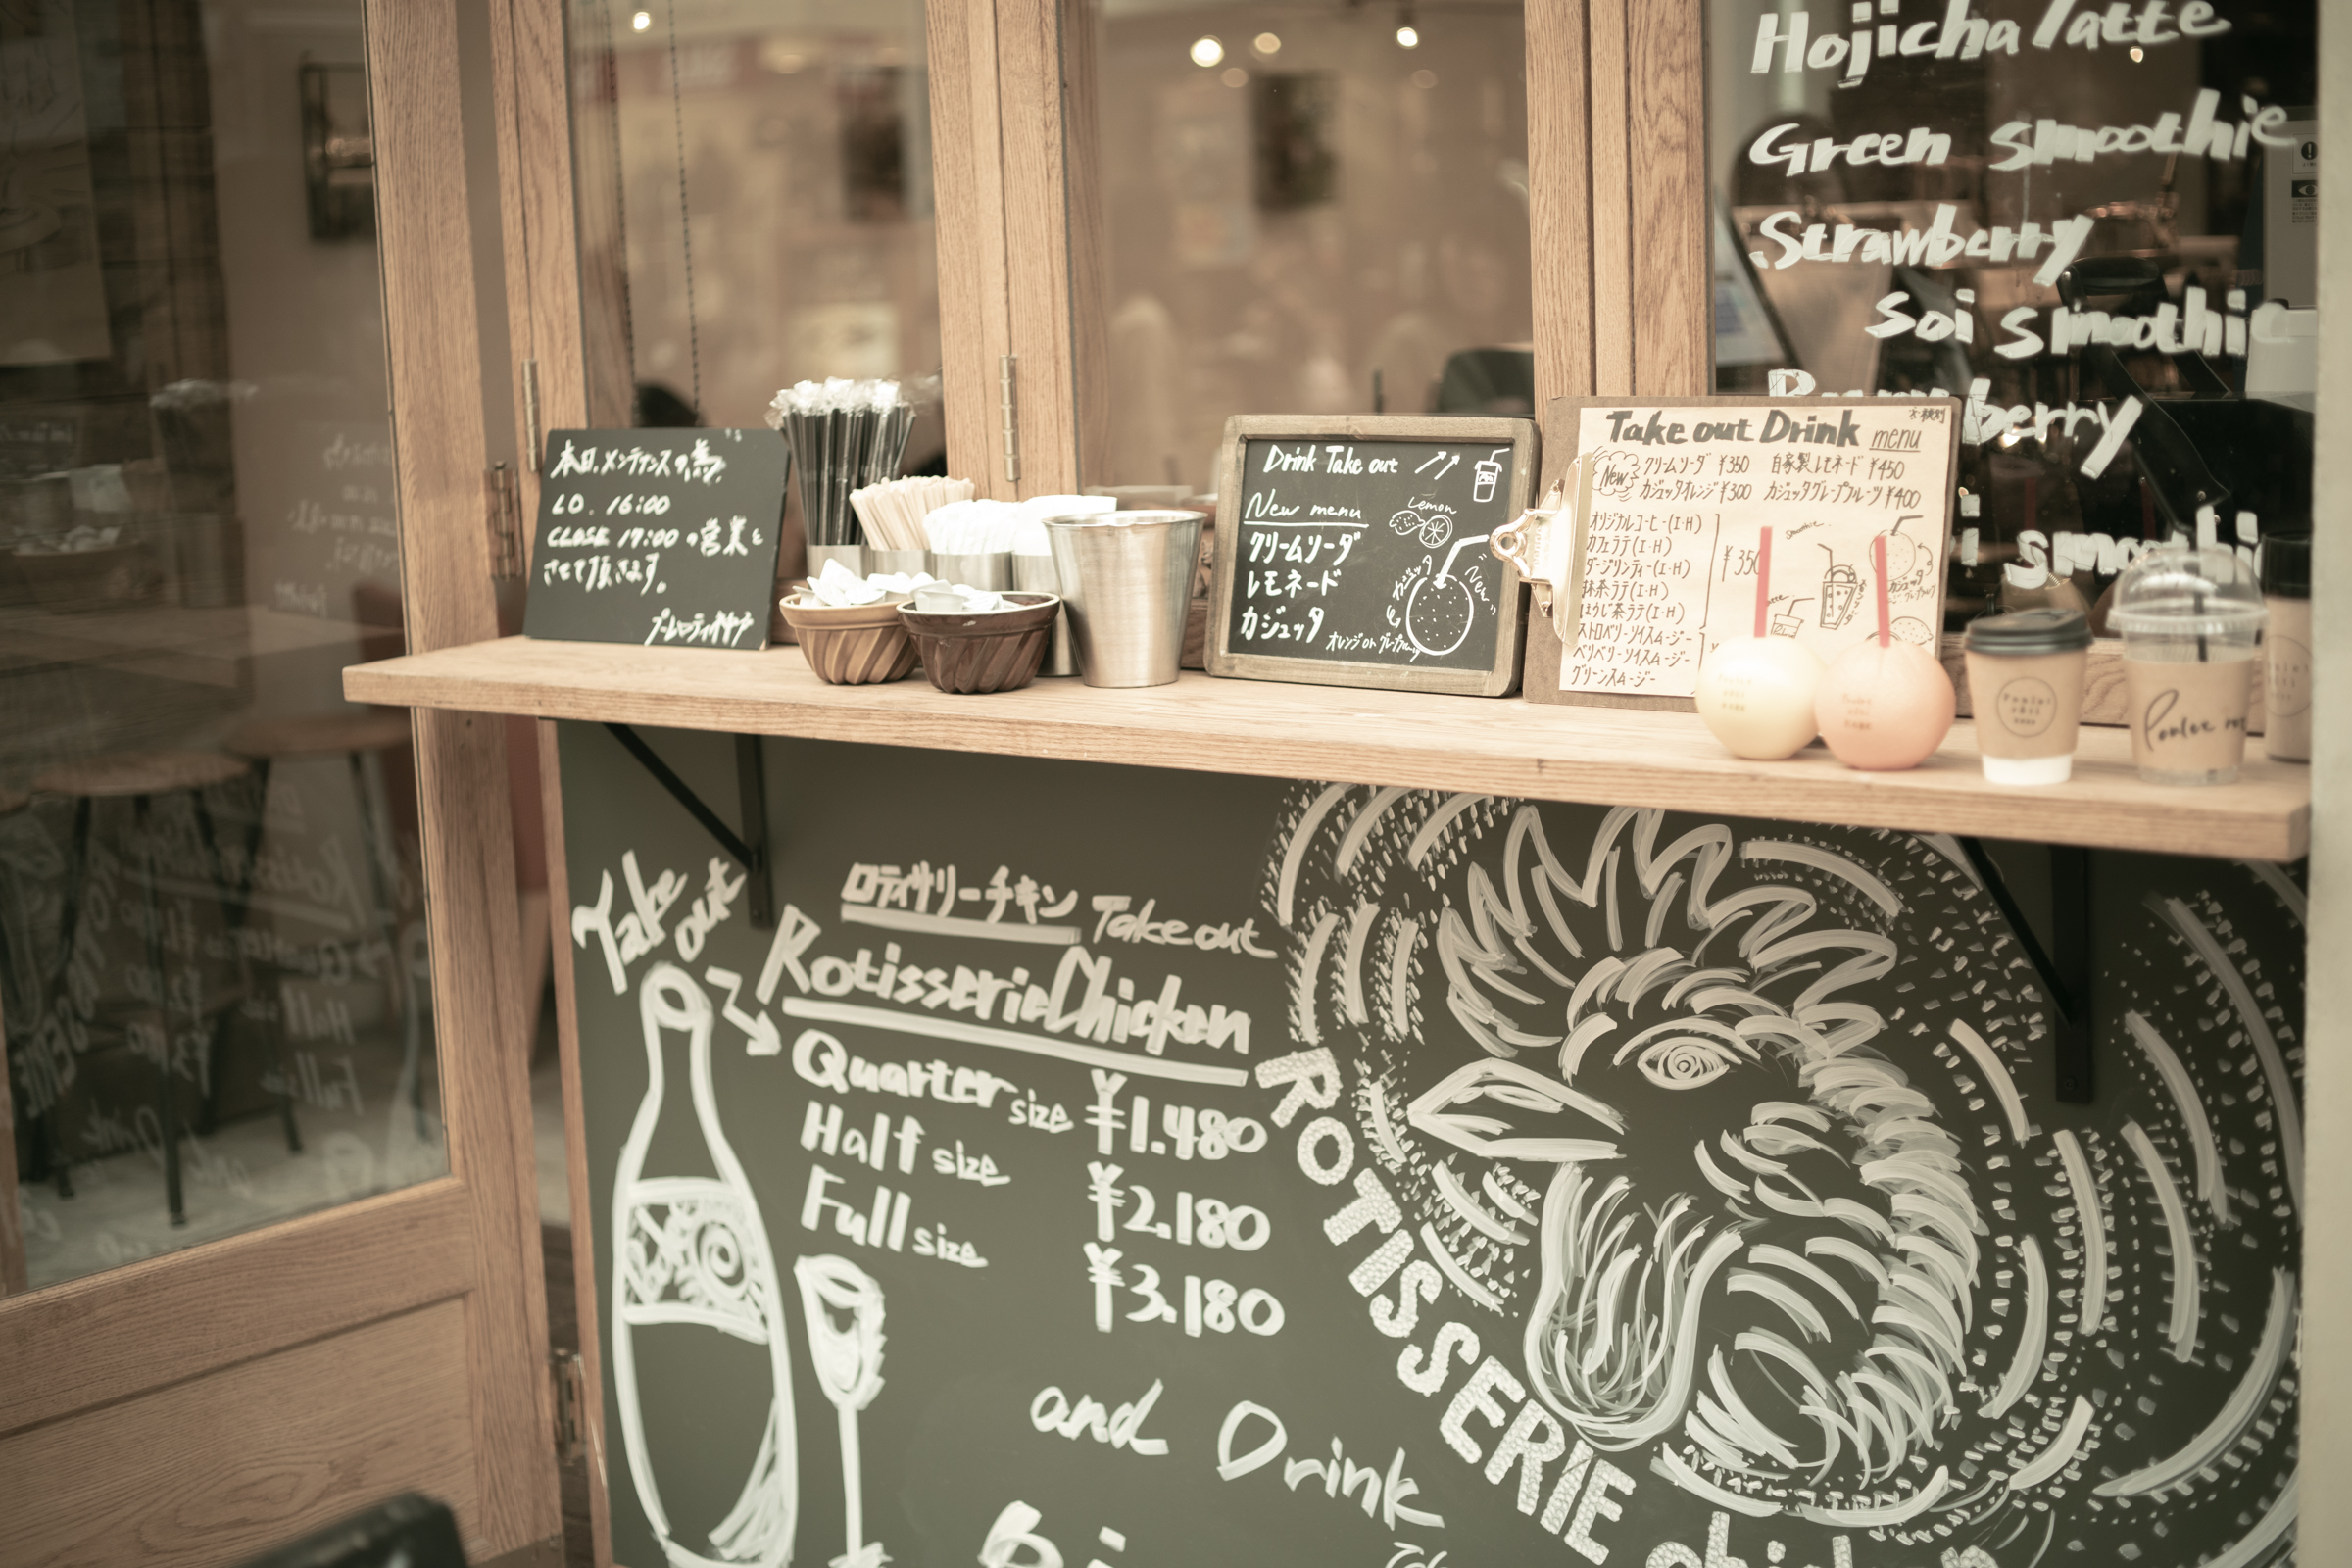 Hojicha latte
Green smoothie
Strawberry
Soi smoothie
berry
smoothie
本日、メンテナンスの為、
L.O. 16:00
CLOSE 17:00の営業と
させて頂きます。
Drink Take out
New menu
クリームソーダ
レモネード
カジュッタ
オレンジ or グレープフルーツ
Lemon
カジュッタ
New
Take out Drink menu
※税別
New
クリームソーダ ¥350 自家製レモネード ¥450
カジュッタオレンジ ¥300 カジュッタグレープフルーツ ¥400
オリジナルコーヒー(I・H)
カフェラテ(I・H)
ダージリンティー(I・H)
抹茶ラテ(I・H)
ほうじ茶ラテ(I・H)
¥350
ストロベリーソイスムージー
ベリベリーソイスムージー
グリーンスムージー
Smoothie
Take out
ロティサリーチキン Take out
Rotisserie Chicken
Quarter size ¥1.480
Half size ¥2.180
Full size ¥3.180
and Drink
ROTISSERIE chicken